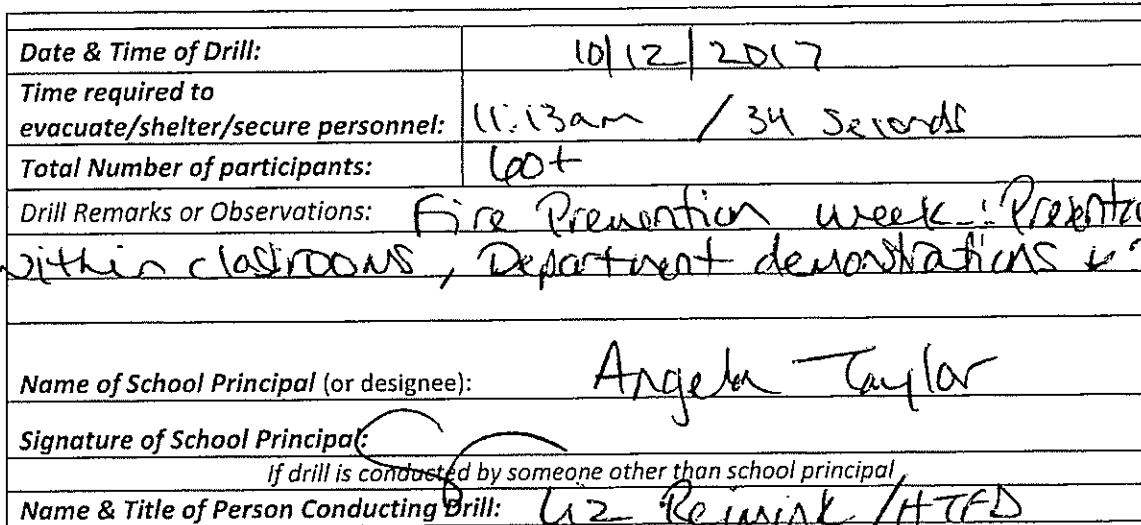 Date & Time of Drill: 10/12/2017
Time required to
evacuate/shelter/secure personnel: 11:13am / 34 Seconds
Total Number of participants: 60+
Drill Remarks or Observations: Fire Prevention week:
within classrooms, Department demonstrations
Name of School Principal (or designee): Angela Taylor
Signature of School Principal:
If drill is conducted by someone other than school principal
Name & Title of Person Conducting Drill: Liz Reimink / HTFD